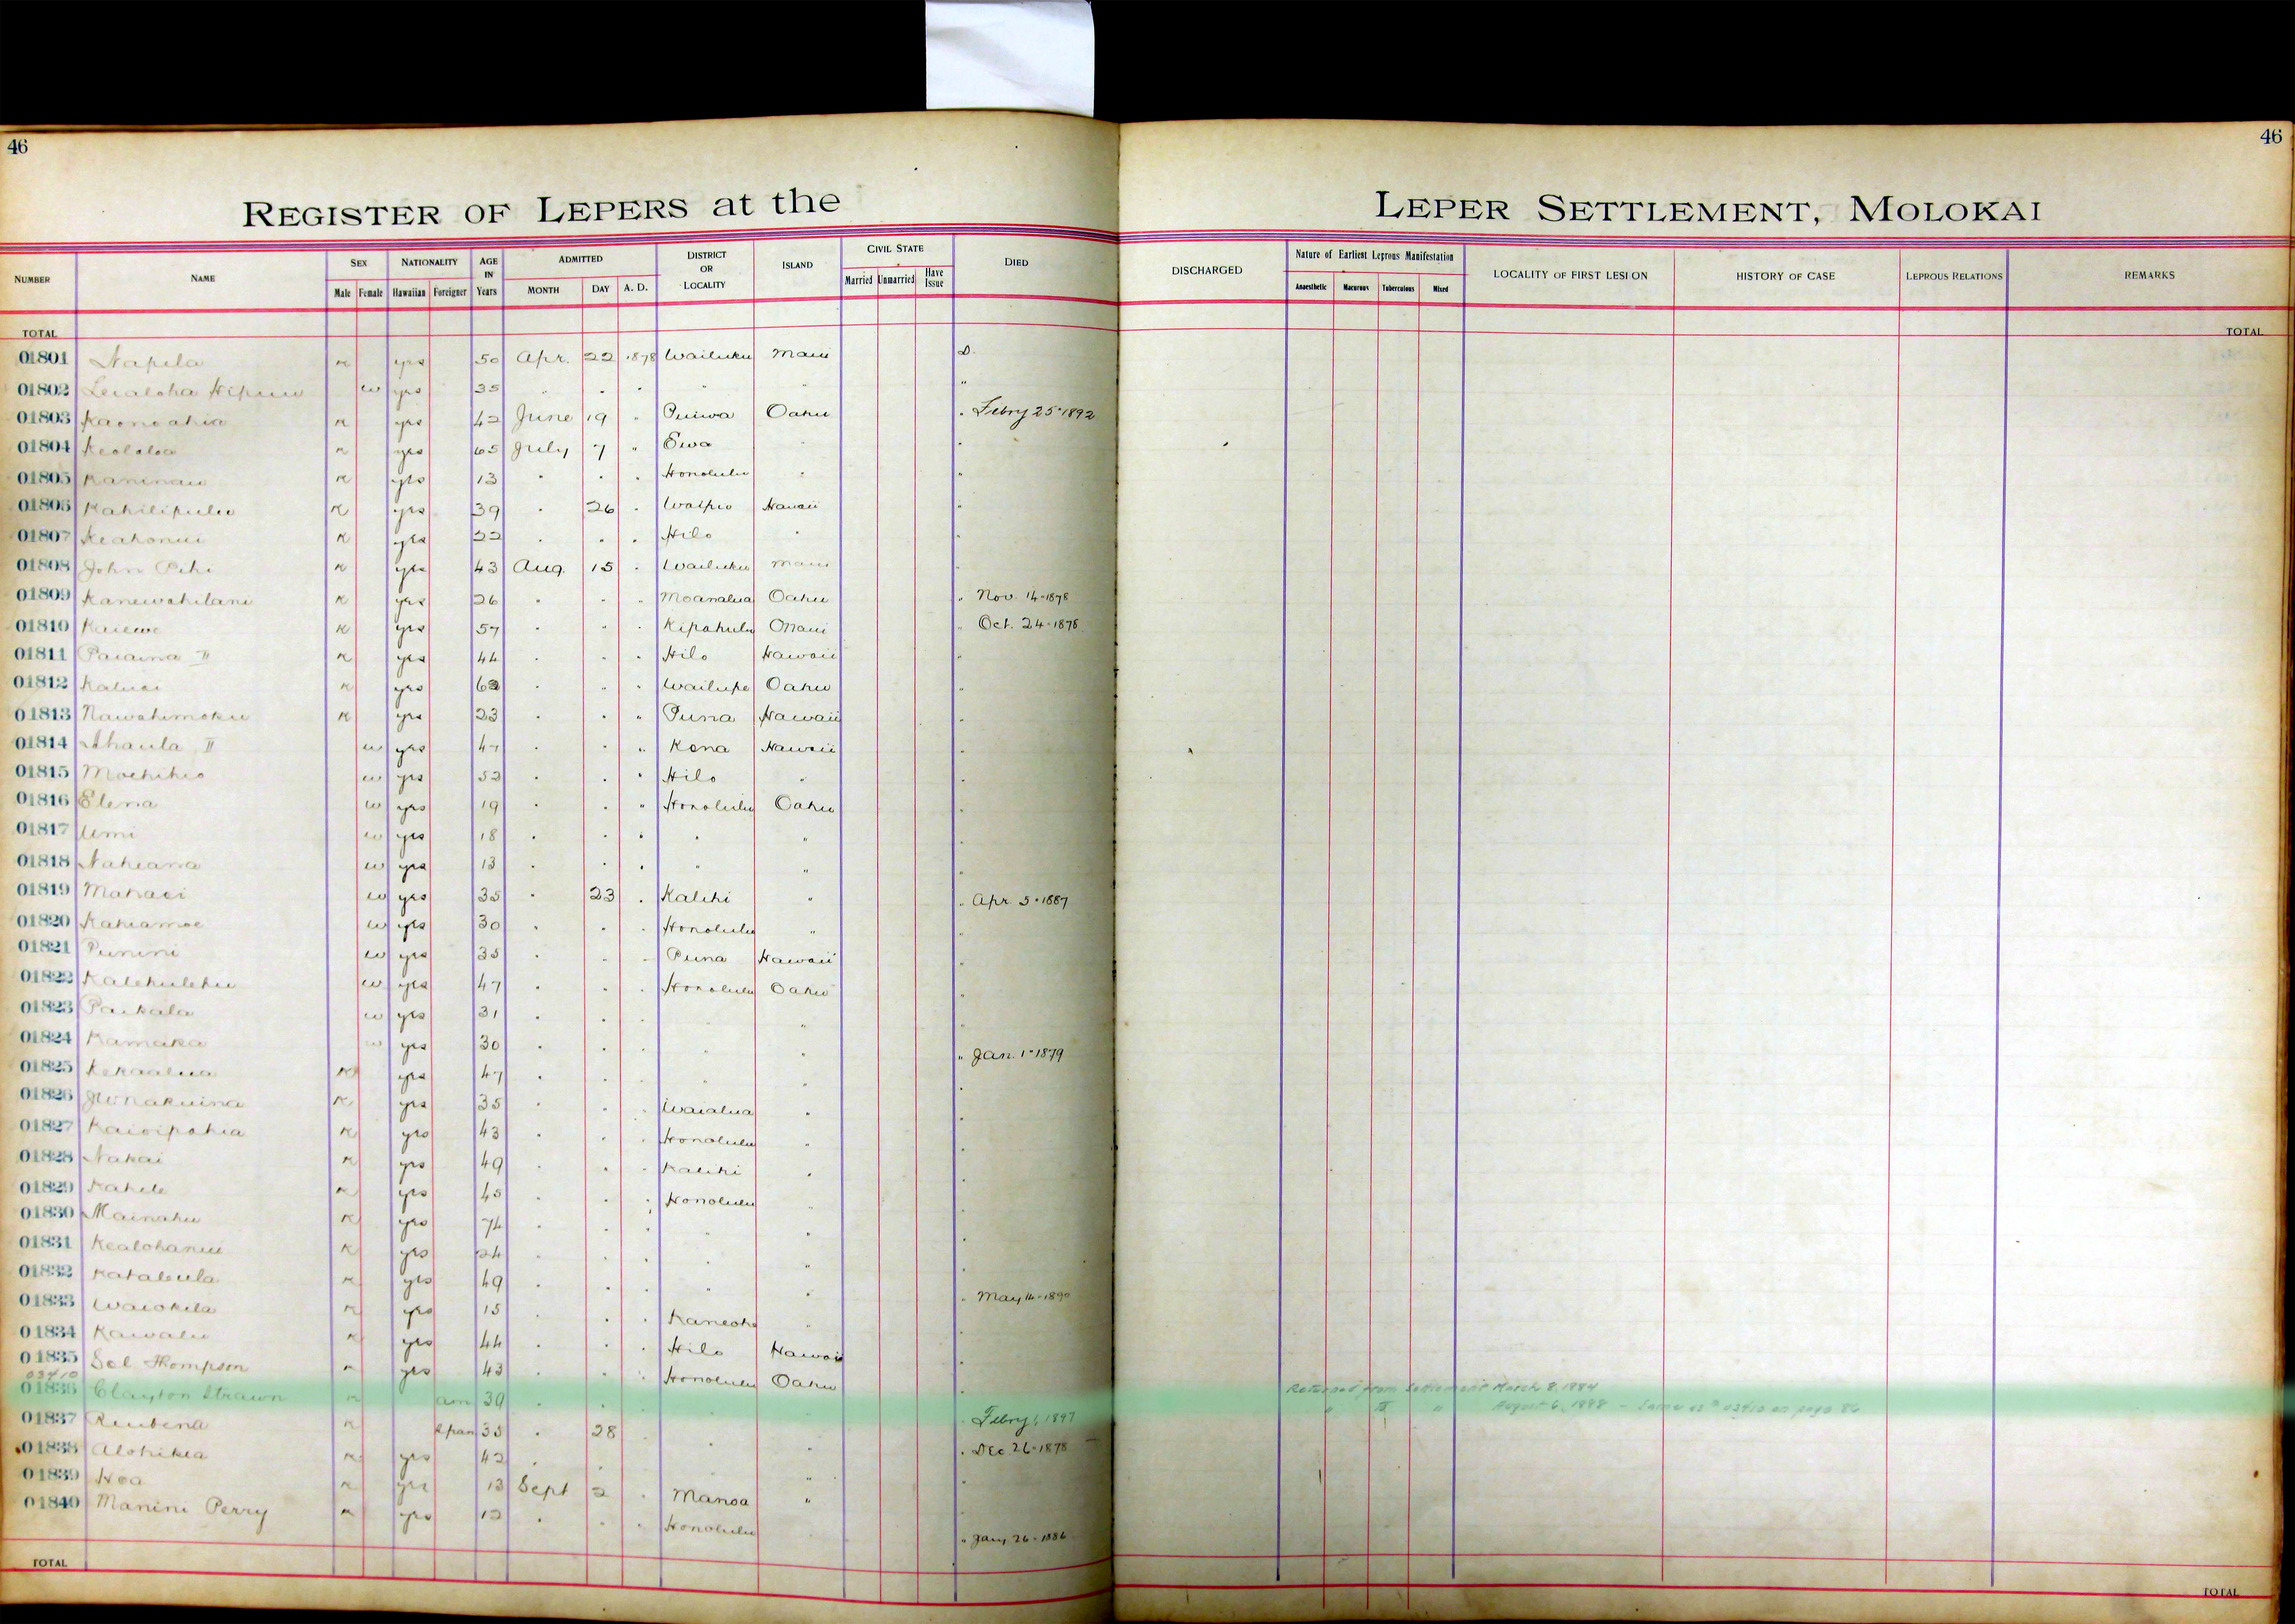 46
46
REGISTER OF LEPERS at the LEPER SETTLEMENT, MOLOKAI
NUMBER NAME SEX Male Female NATIONALITY Hawaiian Foreigner AGE IN Years ADMITTED MONTH DAY A. D. DISTRICT OR LOCALITY ISLAND CIVIL STATE Married Unmarried Have Issue DIED DISCHARGED Nature of Earliest Leprous Manifestation Anaesthetic Macurous Tuberculous Mixed LOCALITY OF FIRST LESION HISTORY OF CASE LEPROUS RELATIONS REMARKS
TOTAL TOTAL
01801 Napela m yes 50 Apr. 22 1878 Wailuku Maui D.
01802 Lealoha w yes 35 " " " " " "
01803 Kaonoahia m yes 42 June 19 " Puiwa Oahu " Febry 25 1892
01804 Keololoa m yes 65 July 7 " Ewa " "
01805 Kaninau m yes 13 " " " Honolulu " "
01806 Kahilipulu m yes 39 " 26 " Waipio Hawaii "
01807 Keahonui m yes 22 " " " Hilo " "
01808 John m yes 43 Aug. 15 " Wailuku Maui "
01809 Kanewahilani m yes 26 " " " Moanalua Oahu " Nov. 14-1878
01810 m yes 57 " " " Kipahulu Maui " Oct. 24-1878
01811 Paiaina II m yes 44 " " " Hilo Hawaii "
01812 Kaluai m yes 62 " " " Wailupe Oahu "
01813 Nawahimoku m yes 23 " " " Puna Hawaii "
01814 Ahaula II w yes 47 " " " Kona Hawaii "
01815 Moehihio w yes 52 " " " Hilo " "
01816 Elena w yes 19 " " " Honolulu Oahu "
01817 Umi w yes 18 " " " " " "
01818 Nahiana w yes 13 " " " " " "
01819 Mahaei w yes 35 " 23 " Kalihi " " Apr. 5-1887
01820 Kahiamoe w yes 30 " " " Honolulu " "
01821 Punini w yes 35 " " " Puna Hawaii "
01822 Kalehulehu w yes 47 " " " Honolulu Oahu "
01823 Paikala w yes 31 " " " " "
01824 Kamaka w yes 30 " " " " " " Jan. 1-1879
01825 Kekaalua m yes 47 " " " " "
01826 m yes 35 " " " Waialua " "
01827 Kaioipahia m yes 43 " " " Honolulu " "
01828 Nakai m yes 49 " " " Kalihi " "
01829 Kahele m yes 45 " " " Honolulu " "
01830 Mainahu m yes 74 " " " " "
01831 Kealohanui m yes 24 " " " " "
01832 m yes 49 " " " " " " May 14-1890
01833 Waiokila m yes 15 " " " Kaneohe " "
01834 Kawalu m yes 44 " " " Hilo Hawaii "
01835 Sol Thompson m yes 43 " " " Honolulu Oahu "
03410
01836 Clayton Strawn m am 39 " " " Febry 1, 1897 Returned from Settlement March 8, 1884
" " " August 6, 1888 - Same as # 03410 on page 86
01837 Reubena m 35 " 28 " " " " Dec 26-1878
01838 Alohikea m yes 42 " " " "
01839 Hoa m yes 13 Sept 2 " Manoa "
01840 Manini Perry m yes 12 " " " Honolulu " Jany 26-1886
TOTAL TOTAL